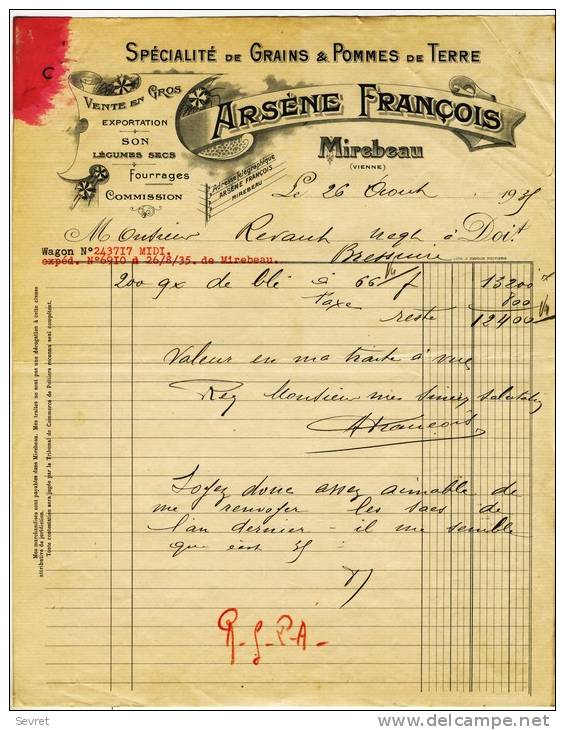 SPÉCIALITÉ DE GRAINS & POMMES DE TERRE
VENTE EN GROS
EXPORTATION
SON
LÉGUMES SECS
FOURRAGES
COMMISSION
ARSÈNE FRANÇOIS
Mirebeau
(VIENNE)
Adresse télégraphique
ARSÈNE FRANÇOIS
MIREBEAU
Le 26 Août 1935
Monsieur Revault négt à Doit
Bressuire
Wagon N°243717 MIDI.
expéd. N°6910 d 26/8/35. de Mirebeau.
200 qx de blé à 66 f 13200
taxe 800
reste 12400
Valeur en ma traite à vue
Rec Monsieur mes sincères salutations
AFrançois
Soyez donc assez aimable de
me renvoyer les sacs de
l'an dernier - il me semble
que c'est 35
Mes marchandises sont payables dans Mirebeau. Mes traites ne sont pas une dérogation à cette clause
attributive de juridiction.
Toute contestation sera jugée par le Tribunal de Commerce de Poitiers reconnu seul compétent.
Sevret
delcampe.net